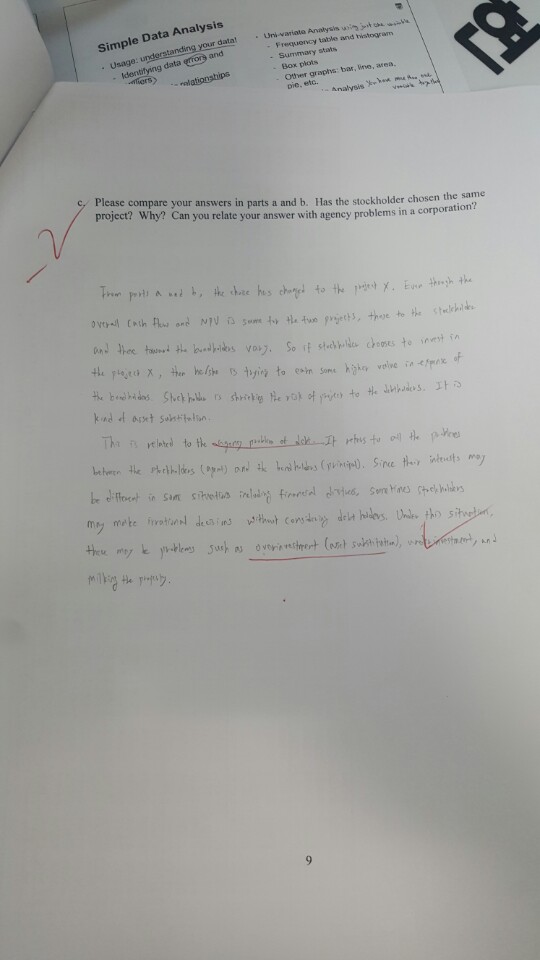 Simple Data Analysis
- Usage: understanding your data!
- Identifying data errors and
outliers)
relationships
- Uni-variate Analysis using just one variable
- Frequency table and histogram
- Summary stats
- Box plots
- Other graphs: bar, line, area,
pie, etc.
Analysis You have more than one
variable together
c. Please compare your answers in parts a and b. Has the stockholder chosen the same
project? Why? Can you relate your answer with agency problems in a corporation?
From parts a and b, the choice has changed to the project X. Even though the
overall cash flow and NPV is same for the two projects, those to the stockholders
and those toward the bondholders vary. So if stockholder chooses to invest in
the project X, then he/she is trying to earn some higher value in expense of
the bondholders. Stockholder is the risk of project to the debtholders. It is
kind of asset substitution.
This is related to the agency problem of debt. It refers to all the problems
between the stockholders (agent) and the bondholders (principal). Since their interests may
be different in some situations including financial distress, sometimes stockholders
may make irrational decisions without considering debt holders. Under this situation,
there may be problems such as overinvestment (asset substitution), underinvestment, and
milking the property.
9